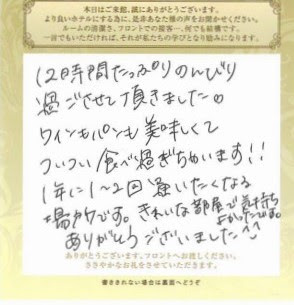 本日はご来館、誠にありがとうございます。
より良いホテルにする為に、是非あなた様の声をお聞かせください。
ルームの清潔さ、フロントでの接客…、何でも結構です。
一言でもいただければ、それが私たちの学びとなり励みになります。
12時間たっぷりのんびり
過ごさせて頂きました。
ワインもパンも美味しくて
ついつい食べ過ぎちゃいます!!
1年に1〜2回逢いたくなる
場所です。きれいな部屋で気持ち
よかったです。
ありがとうございました^^
ありがとうございます。フロントへお渡しください。
ささやかなお礼をさせていただきます。
書ききれない場合は裏面へどうぞ